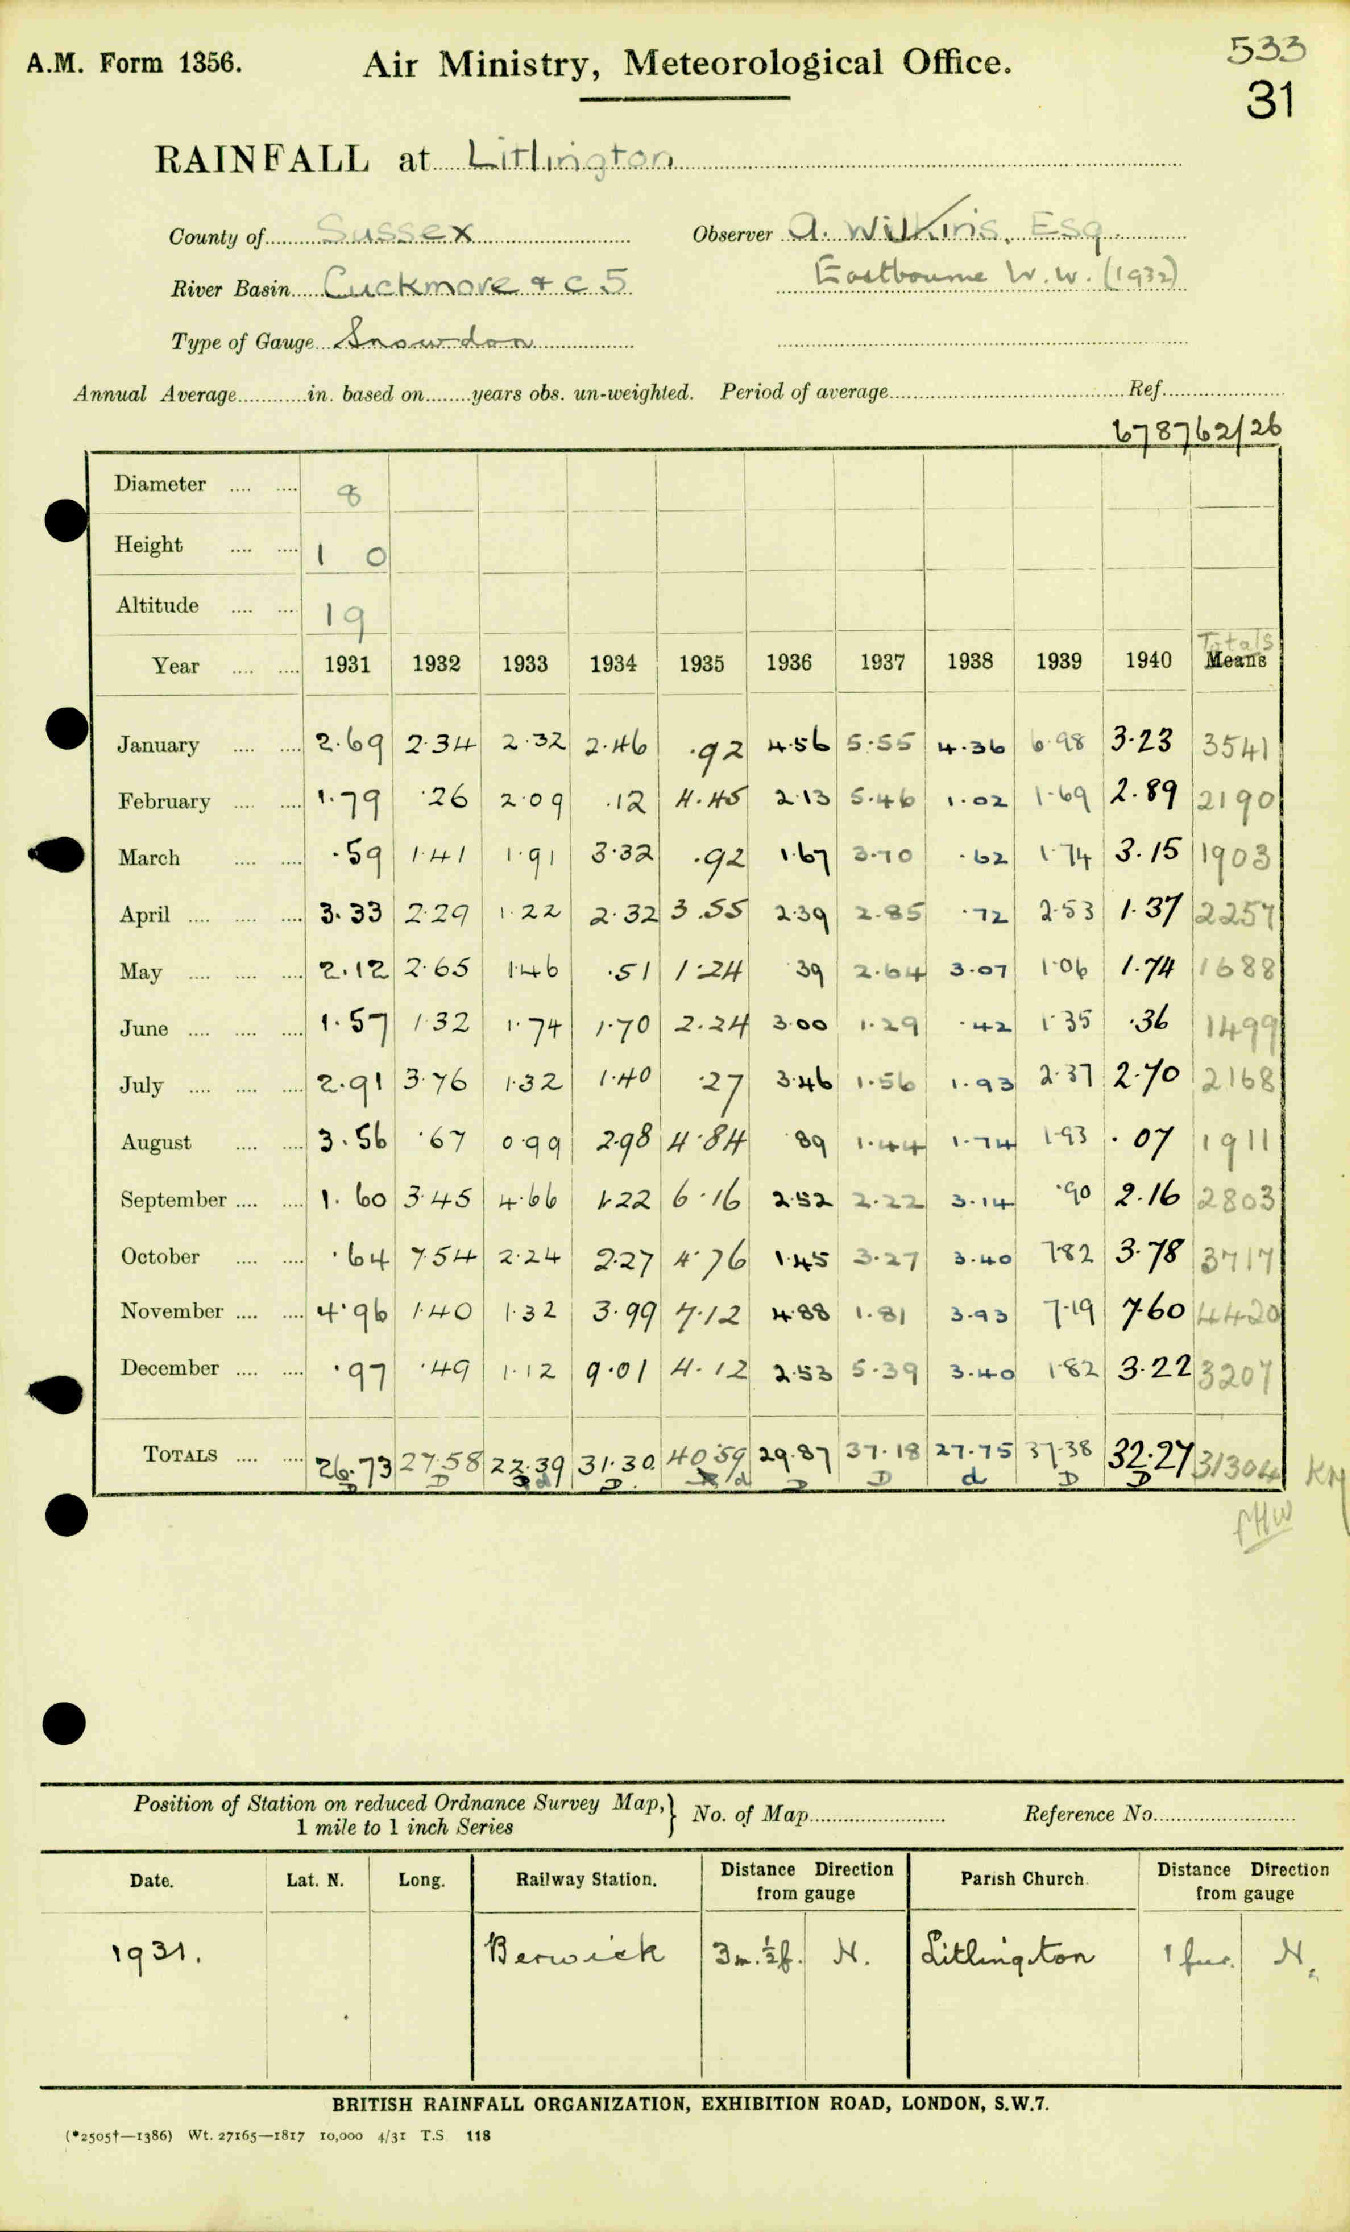 A.M. Form 1356.
Air Ministry, Meteorological Office.
533
31
RAINFALL at Litlington
County of Sussex Observer A. Wilkins, Esq
River Basin Cuckmore & C 5 Eastbourne W.W. (1932)
Type of Gauge Snowdon
Annual Average in. based on years obs. un-weighted. Period of average Ref.
678762/26
Diameter 8
Height 1 0
Altitude 19
Totals
Year 1931 1932 1933 1934 1935 1936 1937 1938 1939 1940 Means
January 2.69 2.34 2.32 2.46 .92 4.56 5.55 4.36 6.98 3.23 3541
February 1.79 .26 2.09 .12 4.45 2.13 5.46 1.02 1.69 2.89 2190
March .59 1.41 1.91 3.32 .92 1.67 3.70 .62 1.74 3.15 1903
April 3.33 2.29 1.22 2.32 3.55 2.39 2.85 .72 2.53 1.37 2257
May 2.12 2.65 1.46 .51 1.24 .39 2.64 3.07 1.06 1.74 1688
June 1.57 1.32 1.74 1.70 2.24 3.00 1.29 .42 1.35 .36 1499
July 2.91 3.76 1.32 1.40 .27 3.46 1.56 1.93 2.37 2.70 2168
August 3.56 .67 0.99 2.98 4.84 .89 1.44 1.74 1.93 .07 1911
September 1.60 3.45 4.66 1.22 6.16 2.52 2.22 3.14 .90 2.16 2803
October .64 7.54 2.24 2.27 4.76 1.45 3.27 3.40 7.82 3.78 3717
November 4.96 1.40 1.32 3.99 7.12 4.88 1.81 3.93 7.19 7.60 4420
December .97 .49 1.12 9.01 4.12 2.53 5.39 3.40 1.82 3.22 3207
TOTALS 26.73 27.58 22.39 31.30 40.59 29.87 37.18 27.75 37.38 32.27 31304
D D d D d D D d D D
Position of Station on reduced Ordnance Survey Map, No. of Map Reference No.
1 mile to 1 inch Series
Date. Lat. N. Long. Railway Station. Distance Direction from gauge Parish Church. Distance Direction from gauge
1931. Berwick 3m. ½f. N. Litlington 1 fur. N.
BRITISH RAINFALL ORGANIZATION, EXHIBITION ROAD, LONDON, S.W.7.
(*2505†—1386) Wt. 27165—1817 10,000 4/31 T.S 118